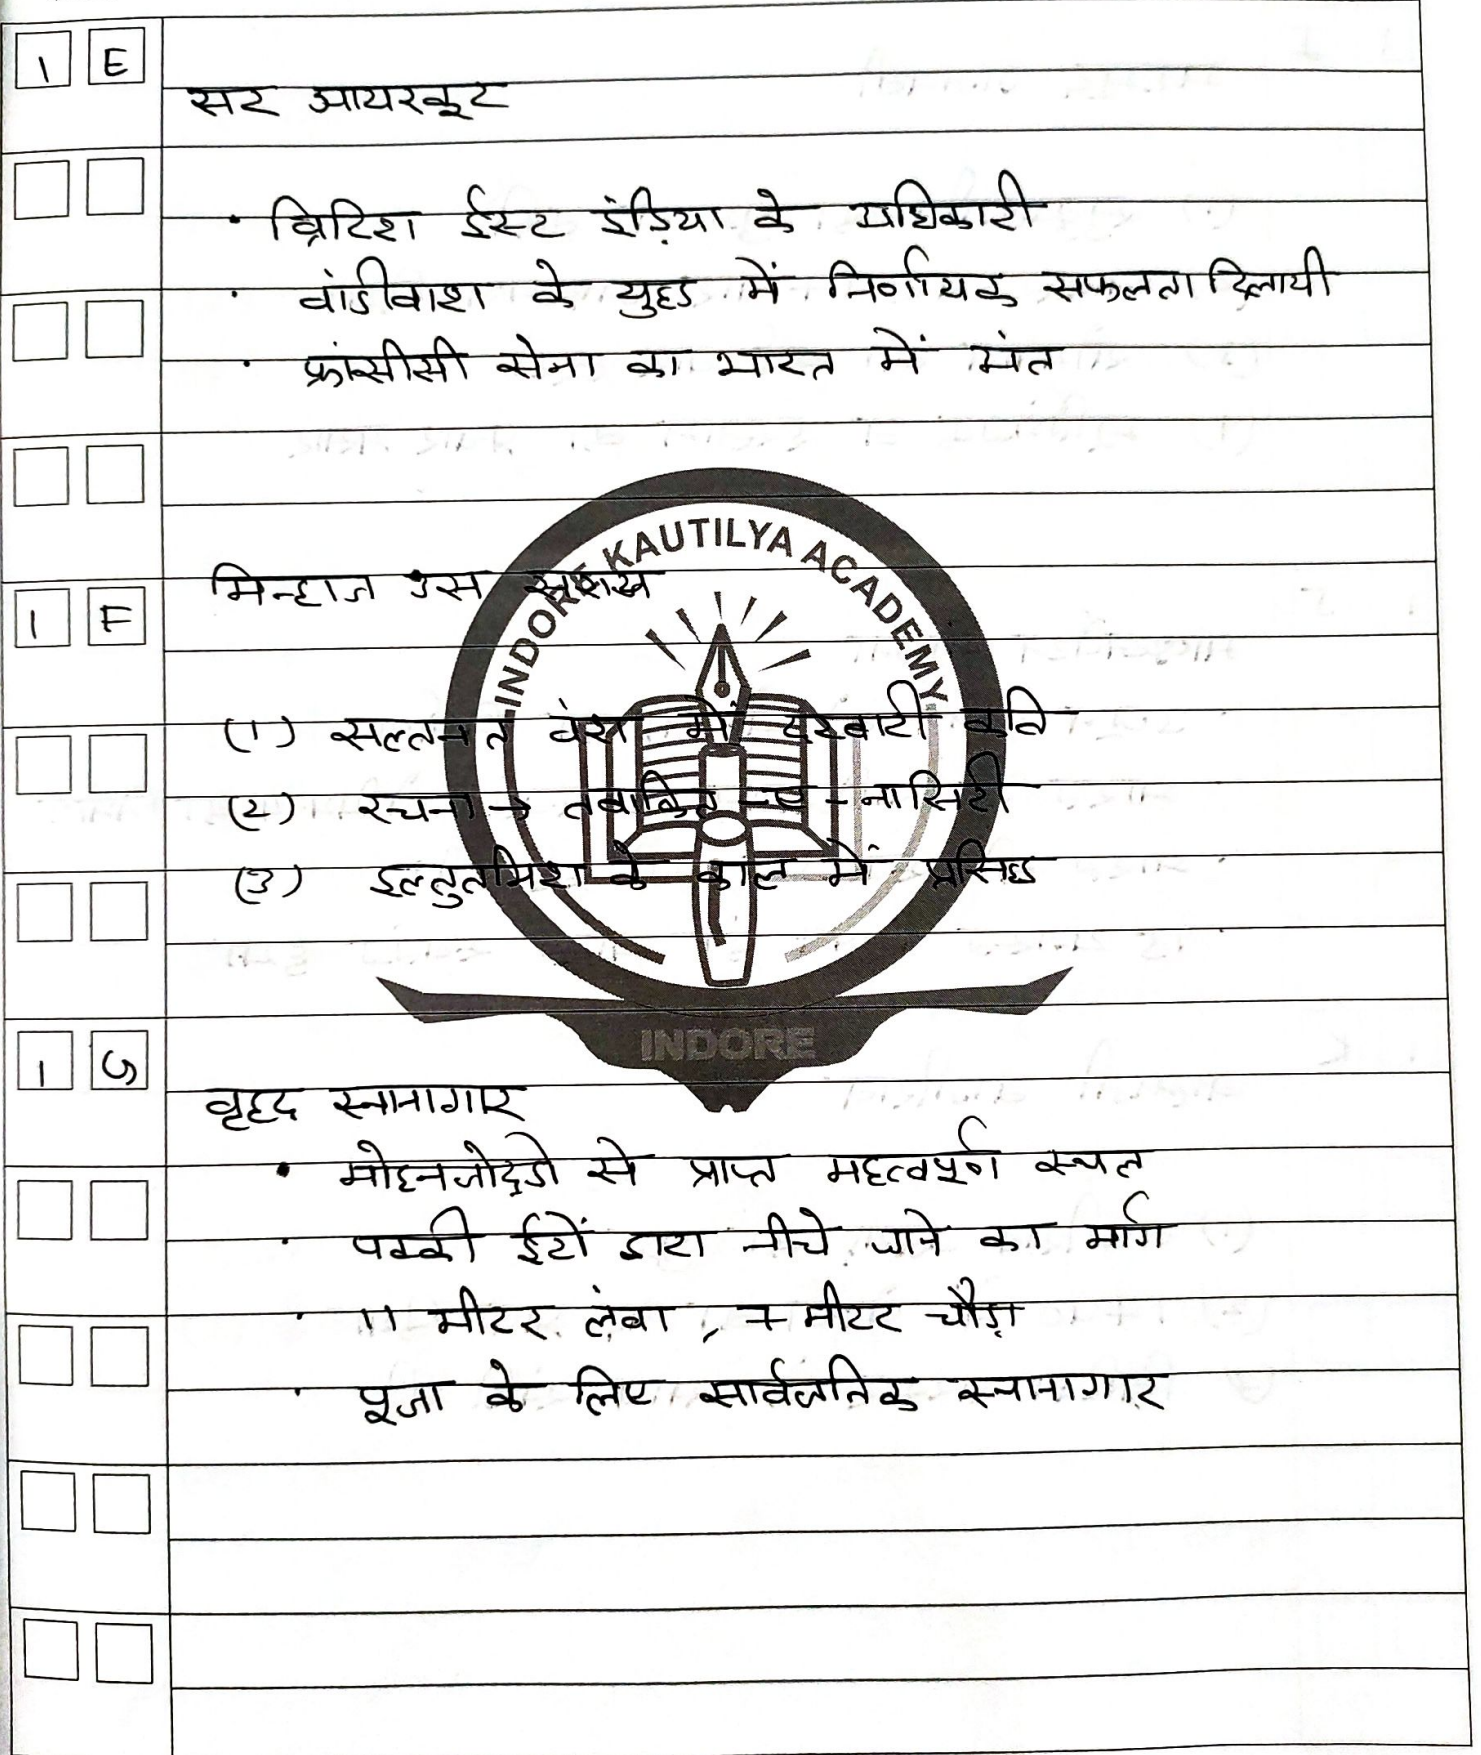 1 E
सर आयरकूट
• ब्रिटिश ईस्ट इंड़िया के अधिकारी
• वांडीवाश के युद्ध में निर्णायक सफलता दिलायी
• फ्रांसीसी सेना का भारत में अंत
INDORE KAUTILYA ACADEMY
1 F
मिन्हाज उस सिराज
(1) सल्तनत वंश में दरबारी कवि
(2) रचना → तबाकित -ए- नासिरी
(3) इल्तुतमिश के काल में प्रसिद्ध
INDORE
1 G
वृहद स्नानागार
• मोहनजोदड़ो से प्राप्त महत्वपूर्ण स्थल
• पक्की ईटों द्वारा नीचे जाने का मार्ग
• 11 मीटर लंबा, 7 मीटर चौड़ा
• पूजा के लिए सार्वजनिक स्नानागार